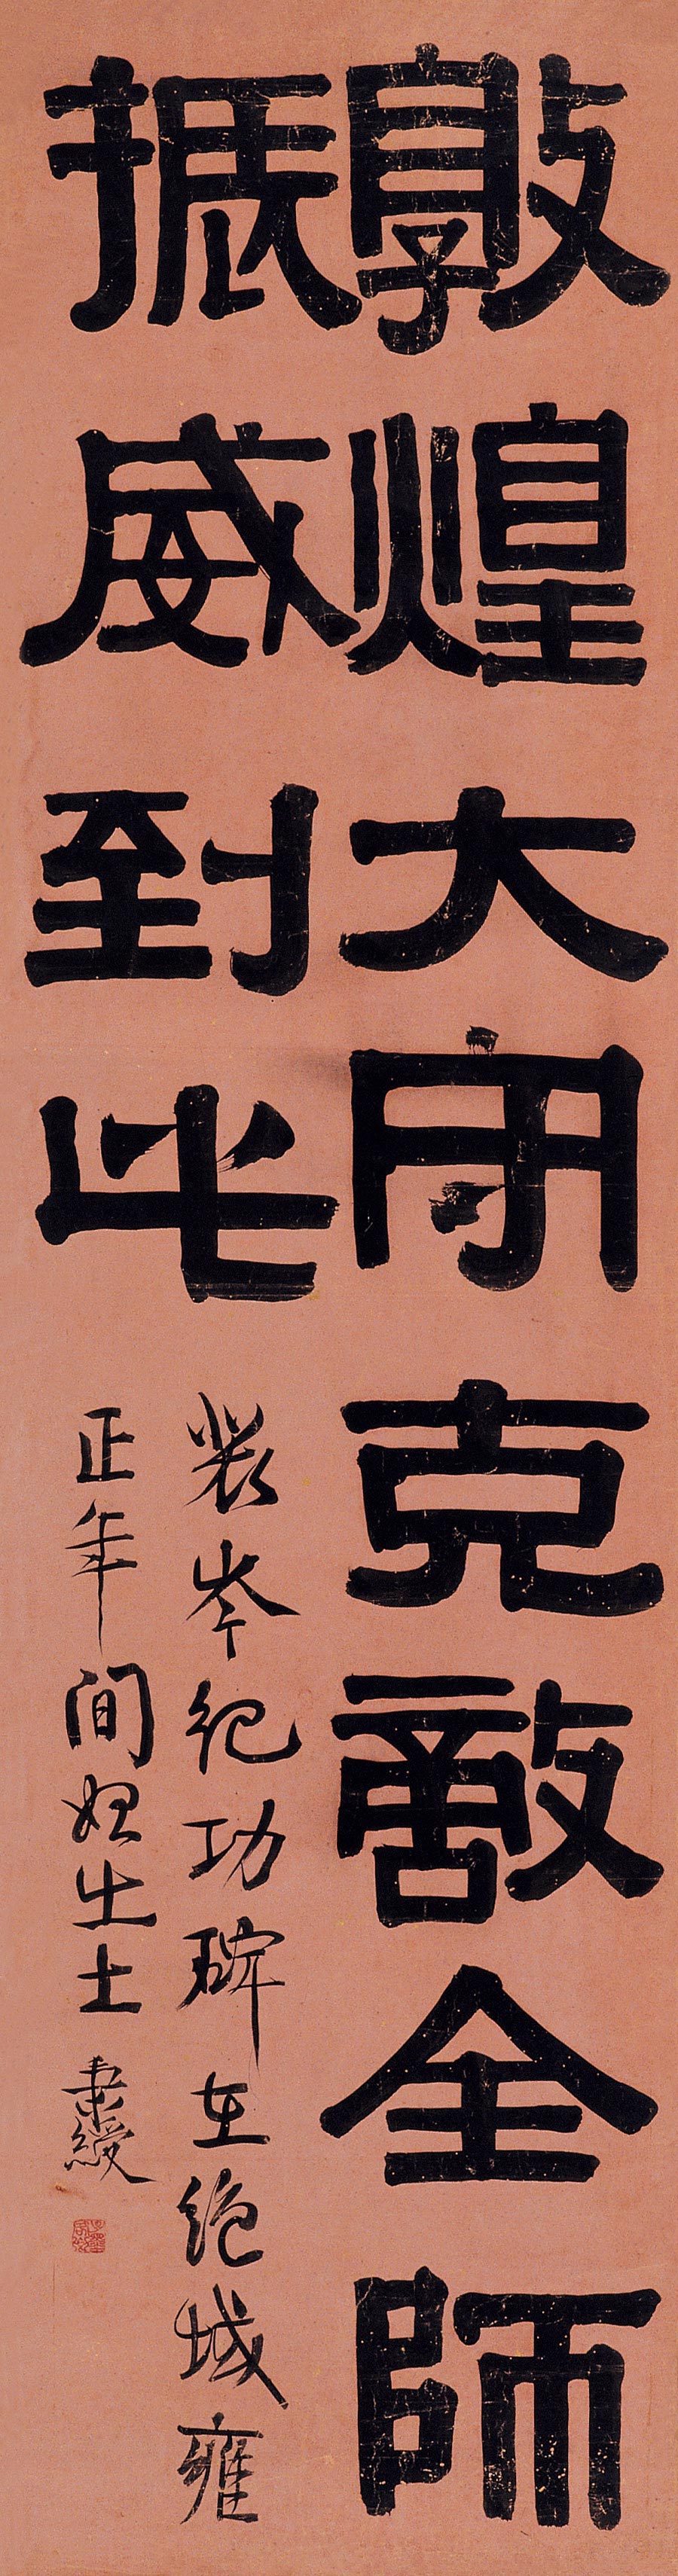 敦煌大守克敵全師
振威到此
裴岑紀功碑在絕域雍
正年間始出土 秉綬